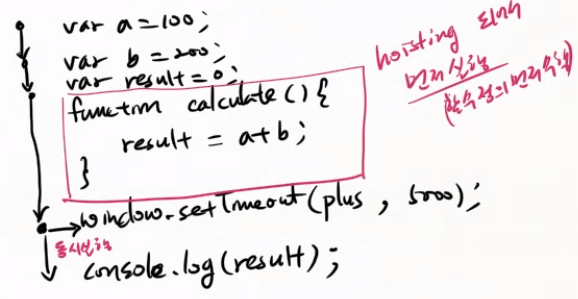 var a=100;
var b=200;
var result=0;
function calculate(){
result = a+b;
}
window.setTimeout(plus, 5000);
동시실행
console.log(result);
hoisting 되어서
먼저실행
(함수정의 먼저수행)